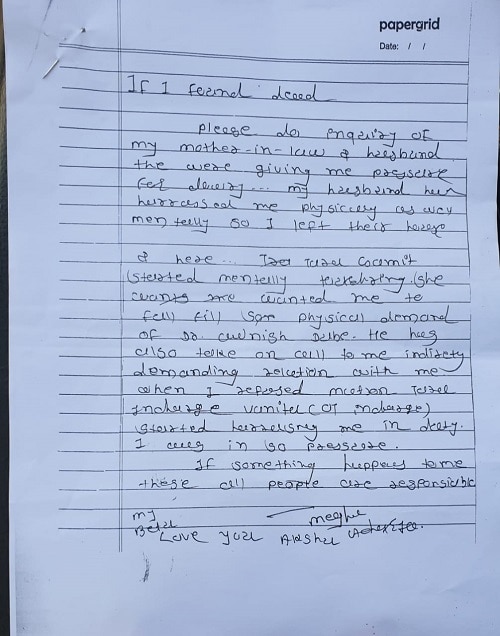 papergrid
Date: / /
If I found dead
please do enquiry of
my mother-in-law & husband
the were giving me pressure
for dowry... my husband has
harrassed me physiccaly as way
mentally so I left their house
& here...
started mentally she
wants me wanted me to
full fill som physical demand
of Dr. He has
also talke on call to me indirety
demanding relation with me
when I repesed
Incharge (OT incharge)
started me in duty.
I was in so pressure.
If something happens to me
these all people are responsible
my
megha
Love you